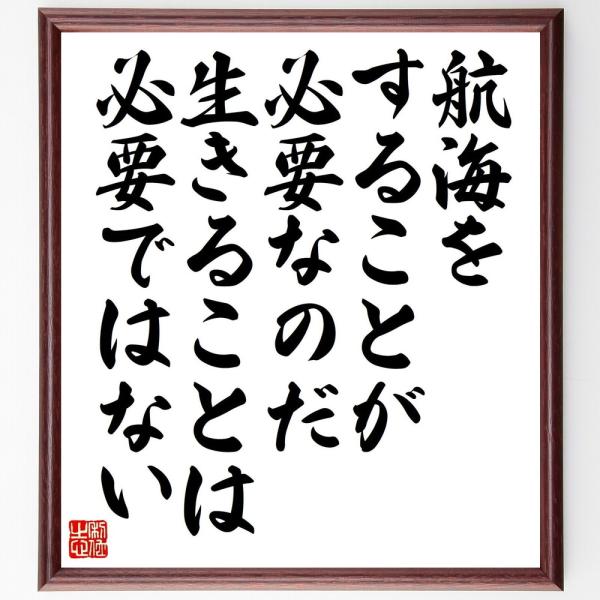 航海を
することが
必要なのだ
生きることは
必要ではない